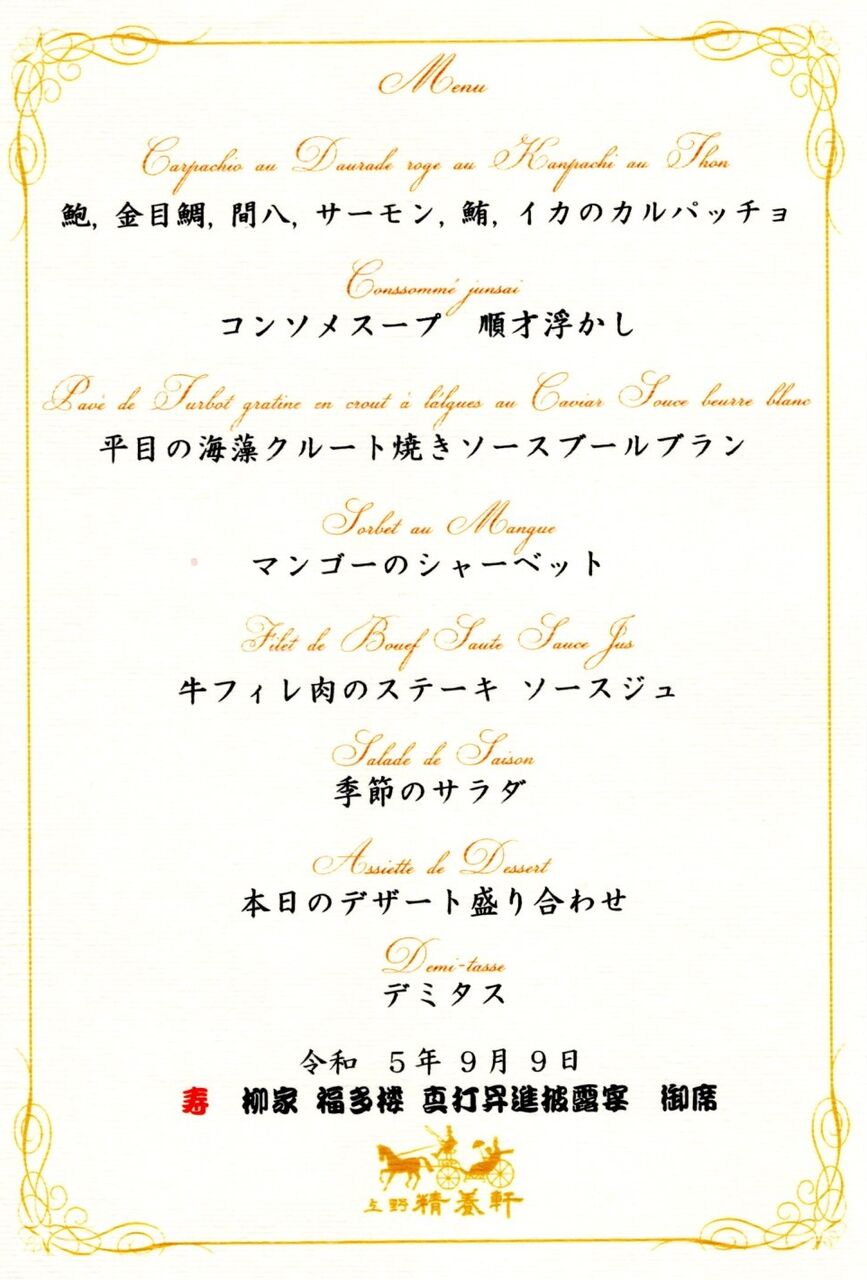 Menu
Carpachio au Daurade roge au Kanpachi au Thon
鮑, 金目鯛, 間八, サーモン, 鮪, イカのカルパッチョ
Conssommé junsai
コンソメスープ　順才浮かし
Pavé de Turbot gratine en crout à lálgues au Caviar Souce beurre blanc
平目の海藻クルート焼きソースブールブラン
Sorbet au Mangue
マンゴーのシャーベット
Filet de Bouef Saute Sauce Jus
牛フィレ肉のステーキ ソースジュ
Salade de Saison
季節のサラダ
Assiette de Dessert
本日のデザート盛り合わせ
Demi-tasse
デミタス
令和　５年 ９月 ９日
寿　柳家 福多楼 真打昇進披露宴　御席
上野 精養軒